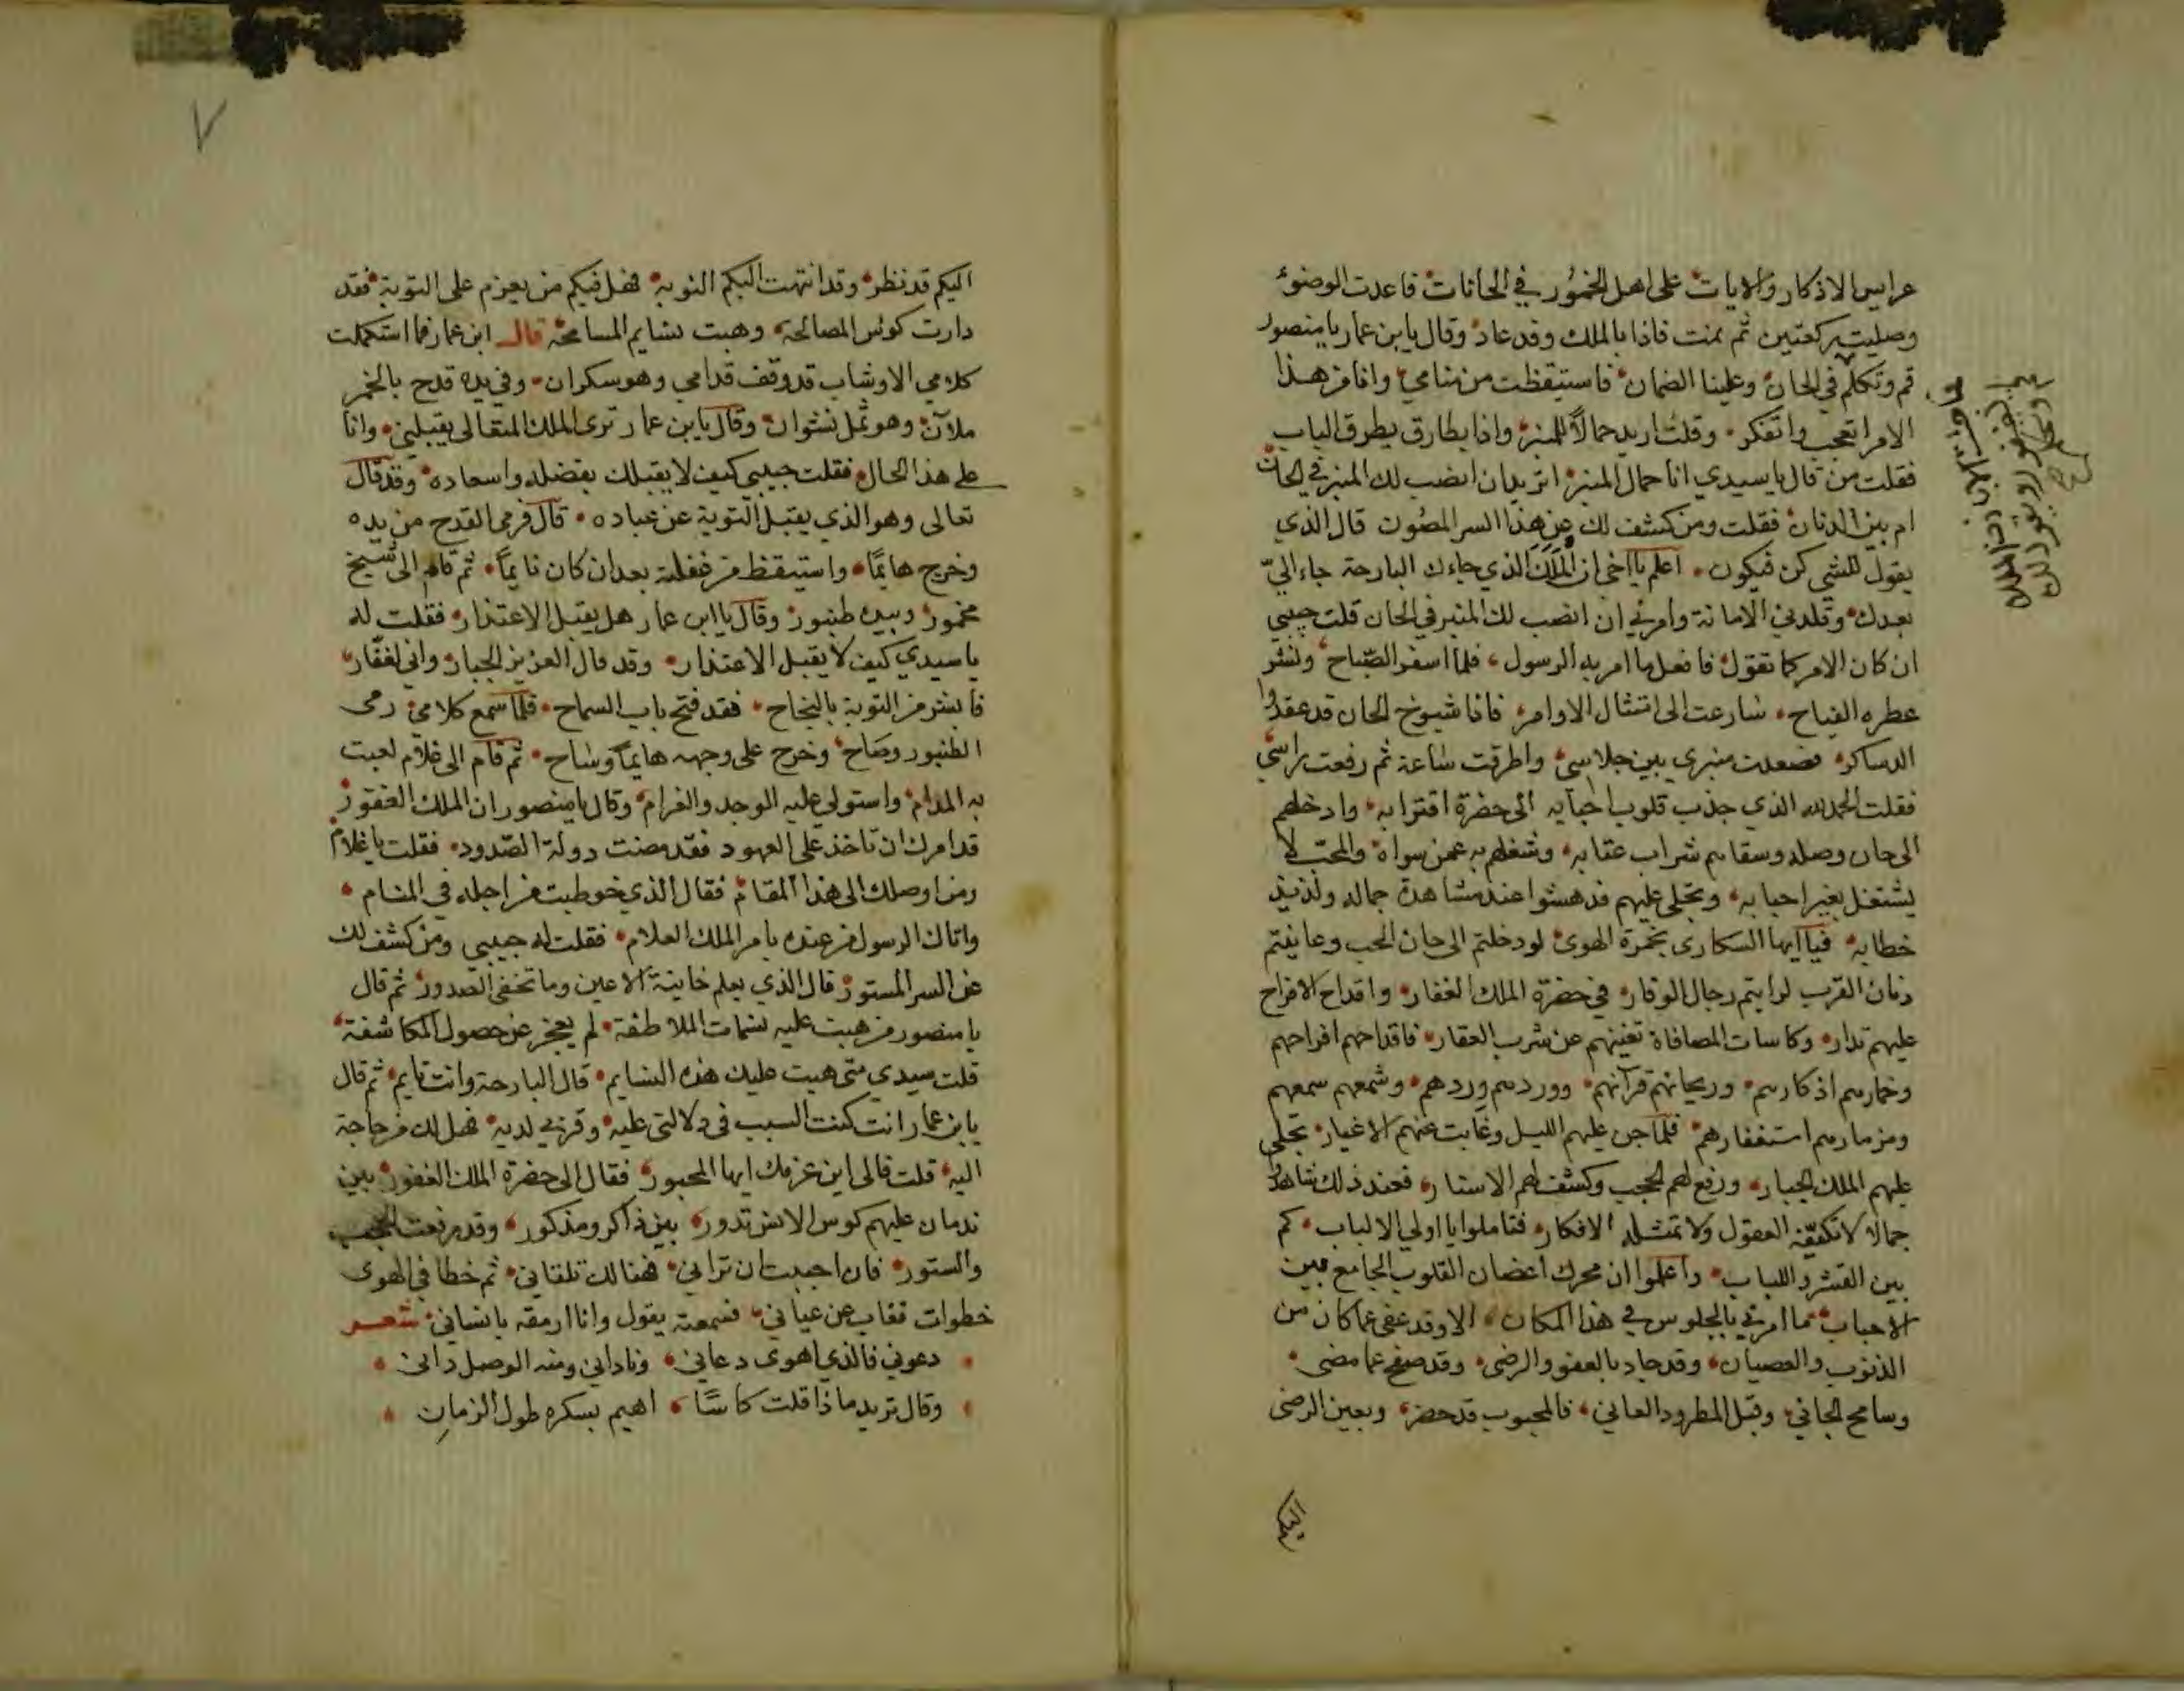 عرايس الاذكار والايات على اهل الخمور في الحانات فاعدت الوضوء
وصليت ركعتين ثم نمت فاذا بالملك وقد عاد وقال يابن عمار يا منصور
قم وتكلم في الحان وعلينا الضمان فاستيقظت من منامي وانا من هذا
الامر اتعجب واتفكر وقلت اريد حمالاً للمنبر واذا بطارق يطرق الباب
فقلت من قال يا سيدي انا حمال المنبر اتريد ان انصب لك المنبر في الحان
ام بين الدنان فقلت ومن كشف لك عن هذا السر المصون قال الذي
يقول للشي كن فيكون اعلم يا اخي ان الملك الذي جاءك البارحة جاء اليّ
بعدك وقلدني الامانة وامرني ان انصب لك المنبر في الحان قلت حبيبي
ان كان الامر كما تقول فافعل ما امر به الرسول فلما اسفر الصباح ونشر
عطره الفياح سارعت الى امتثال الاوامر فاذا شيوخ الحان قد عقدوا
الدساكر فصعدت منبري بين جلاسي واطرقت ساعة ثم رفعت براسي
فقلت الحمد لله الذي جذب قلوب احبابه الى حضرة اقترابه وادخلهم
الى حان وصله وسقاهم شراب عتابه وشغلهم به عمن سواه والمحب لا
يشتغل بغير احبابه وتجلى عليهم فدهشوا عند مشاهدة جماله ولذيذ
خطابه فيا ايها السكارى بخمرة الهوى لو دخلتم الى حان الحب وعاينتم
دنان القرب لرايتم رجال الوقار في حضرة الملك الغفار واقداح الافراح
عليهم تدار وكاسات المصافاة تغنيهم عن شرب العقار فاقداحهم افراحهم
وخمارهم اذكارهم وريحانهم قرآنهم ووردهم وردهم وشمعهم سمعهم
ومزمارهم استغفارهم فلما جن عليهم الليل وغابت عنهم الاغيار تجلى
عليهم الملك الجبار ورفع لهم الحجب وكشف لهم الاستار فعند ذلك شاهدوا
جمالا لا تكيفه العقول ولا تمثله الافكار فتاملوا يا اولي الالباب كم
بين القشر واللباب واعلموا ان محرك اغصان القلوب الجامع بين
الاحباب ما امرني بالجلوس في هذا المكان الا وقد عفى عما كان من
الذنوب والعصيان وقد جاد بالعفو والرضى وقد صفح عما مضى
وسامح الجاني وقبل المطرود العاني فالمحبوب قد حضر وبعين الرضى
اليكم
٧
اليكم قد نظر وقد انتهت اليكم النوبة فهل فيكم من يعزم على التوبة فقد
دارت كوس المصالحة وهبت نسايم المسامحة قال ابن عمار فما استكملت
كلامي الا وشاب قد وقف قدامي وهو سكران وفي يده قدح بالخمر
ملآن وهو ثمل نشوان وقال يابن عمار ترى الملك المتعالى يقبلني وانا
على هذا الحال فقلت حبيبي كيف لا يقبلك بفضله واسعاده وقد قال
تعالى وهو الذي يقبل التوبة عن عباده قال فرمى القدح من يده
وخرج هايمًا واستيقظ من غفلته بعد ان كان نايمًا ثم قام الى شيخ
مخمور وبيده طنبور وقال يا ابن عمار هل يقبل الاعتذار فقلت له
يا سيدي كيف لا يقبل الاعتذار وقد قال العزيز الجبار واني لغفار
فابشر من التوبة بالنجاح فقد فتح باب السماح فلما سمع كلامي رمى
الطنبور وصاح وخرج على وجهه هايمًا وساح ثم قام الى غلام لعبت
به المدام واستولى عليه الوجد والغرام وقال يا منصور ان الملك الغفور
قد امرك ان تاخذ علي العهود فقد مضت دولة الصدود فقلت يا غلام
ومن اوصلك الى هذا المقام فقال الذي خوطبت من اجله في المنام
واتاك الرسول من عنده بامر الملك العلام فقلت له حبيبي ومن كشف لك
عن السر المستور قال الذي يعلم خاينة الاعين وما تخفي الصدور ثم قال
يا منصور من هبت عليه نسمات الملاطفة لم يعجز عن حصول المكاشفة
قلت سيدي متى هبت عليك هذه النسايم قال البارحة وانت نايم ثم قال
يابن عمار انت كنت السبب في دلالتي عليه وقربي لديه فهل لك من حاجة
اليه قلت فالى اين عزمك ايها المحبور فقال الى حضرة الملك الغفور بين
ندمان عليهم كوس الانس تدور بين ذاكر ومذكور وقد رفعت الحجب
والستور فان احببت ان تراني فهنالك تلقاني ثم خطا في الهوى
خطوات فغاب عن عياني فسمعته يقول وانا ارمقه بانساني شعر
دعوني فالذي اهوى دعاني وناداني ومنه الوصل داني
وقال تريد ماذا قلت كاسًا اهيم بسكره طول الزمانِ